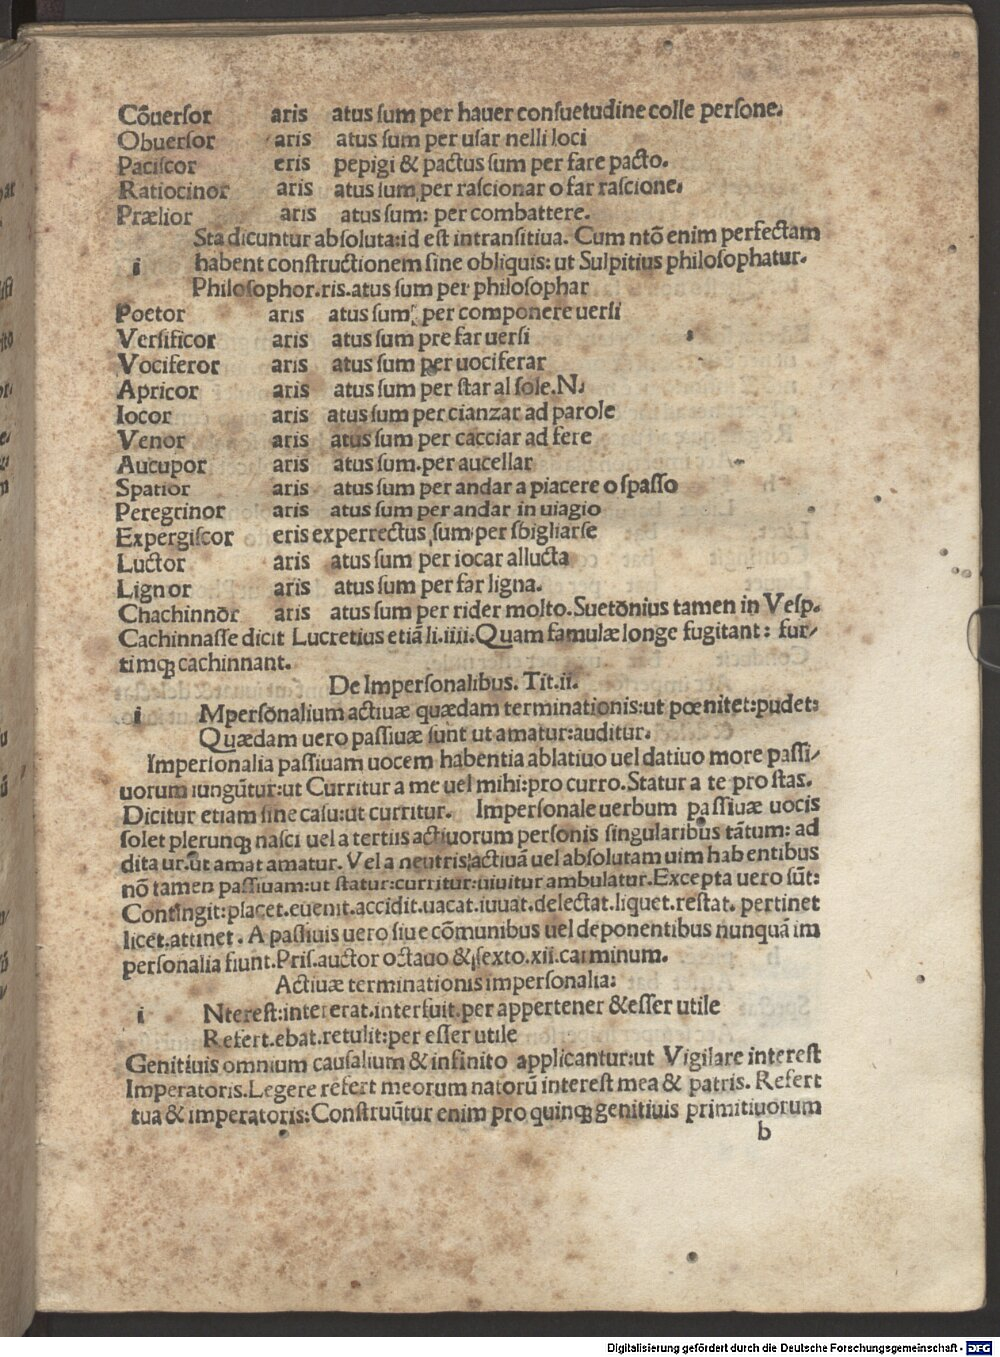 Cõuerſor aris atus ſum per hauer conſuetudine colle perſone.
Obuerſor aris atus ſum per uſar nelli loci
Paciſcor eris pepigi & pactus ſum per fare pacto.
Ratiocinor aris atus ſum per raſcionar o far raſcione.
Prælior aris atus ſum: per combattere.
Sta dicuntur abſoluta:id eſt intranſitiua. Cum ntõ enim perfectam
i habent conſtructionem ſine obliquis: ut Sulpitius philoſophatur.
Philoſophor.ris.atus ſum per philoſophar
Poetor aris atus ſum: per componere uerſi
Verſificor aris atus ſum pre far uerſi
Vociferor aris atus ſum per uociferar
Apricor aris atus ſum per ſtar al ſole.N.
Iocor aris atus ſum per cianzar ad parole
Venor aris atus ſum per cacciar ad fere
Aucupor aris atus ſum.per aucellar
Spatior aris atus ſum per andar a piacere o ſpaſſo
Peregrinor aris atus ſum per andar in uiagio
Expergiſcor eris experrectus ſum per ſbigliarſe
Luctor aris atus ſum per iocar allucta
Lignor aris atus ſum per far ligna.
Chachinnõr aris atus ſum per rider molto.Suetõnius tamen in Veſp.
Cachinnaſſe dicit Lucretius etiã li.iiii.Quam famulæ longe fugitant: fur/
timqꝫ cachinnant.
De Imperſonalibus. Tit.ii.
i Mperſõnalium actiuæ quædam terminationis:ut pœnitet:pudet:
Quædam uero paſſiuæ ſunt ut amatur:auditur.
Imperſonalia paſſiuam uocem habentia ablatiuo uel datiuo more paſſi/
uorum iungũtur:ut Curritur a me uel mihi:pro curro.Statur a te pro ſtas.
Dicitur etiam ſine caſu:ut curritur. Imperſonale uerbum paſſiuæ uocis
ſolet plerunqꝫ naſci uel a tertiis actiuorum perſonis ſingularibus tãtum: ad
dita ur.ut amat amatur. Vel a neutris:actiuã uel abſolutam uim habentibus
nõ tamen paſſiuam:ut ſtatur:curritur:uiuitur ambulatur.Excepta uero ſũt:
Contingit:placet.euenit.accidit.uacat.iuuat.delectat.liquet.reſtat. pertinet
licet.attinet. A paſſiuis uero ſiue cõmunibus uel deponentibus nunquã im
perſonalia fiunt.Priſ.auctor octauo & ſexto.xii.carminum.
Actiuæ terminationis imperſonalia:
i Ntereſt:intererat.interfuit.per appertener & eſſer utile
Refert.ebat.retulit:per eſſer utile
Genitiuis omnium cauſalium & infinito applicantur:ut Vigilare intereſt
Imperatoris.Legere refert meorum natorũ intereſt mea & patris. Refert
tua & imperatoris:Conſtruũtur enim pro quinqꝫ genitiuis primitiuorum
b
Digitalisierung gefördert durch die Deutsche Forschungsgemeinschaft - DFG